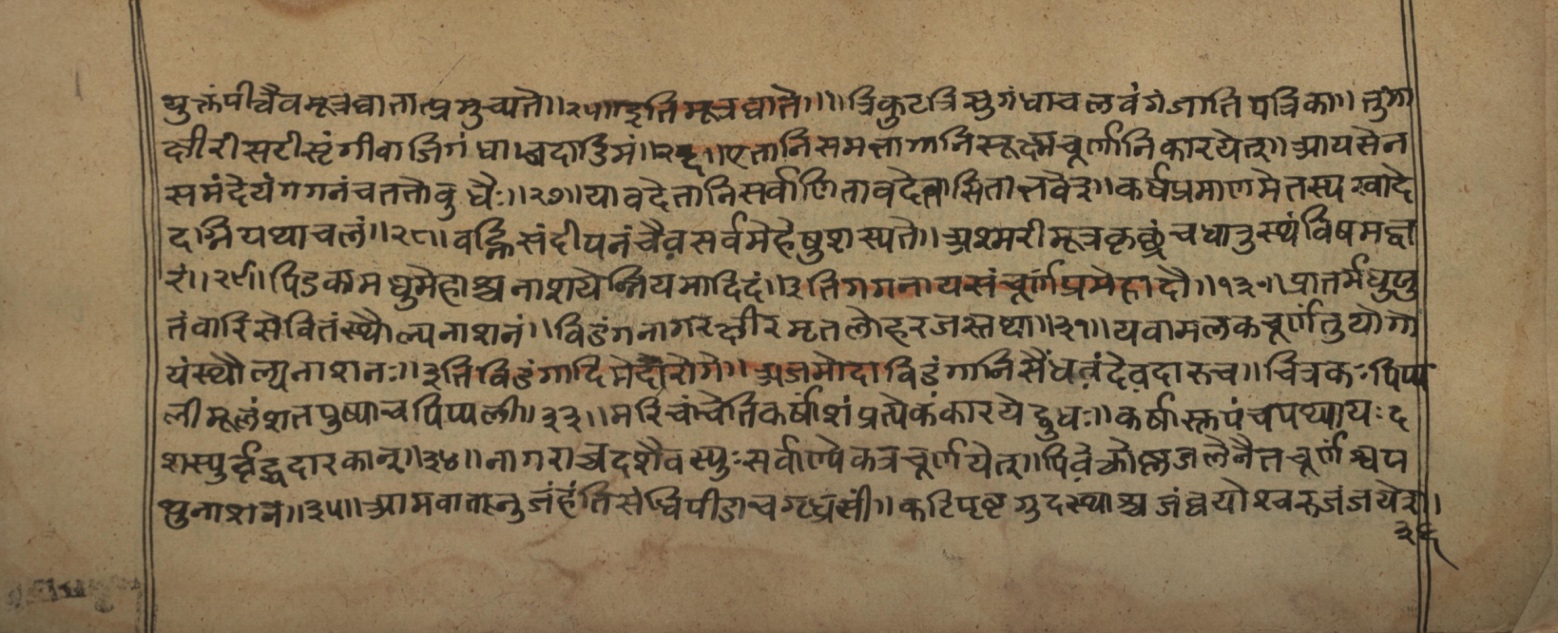 युक्तंपीत्वैवमूत्रघातात्प्रमुच्यते॥२५॥इतिमूत्रघाते॥॥त्रिकुटत्रिसुगंधाचलवंगंजातिपत्रिका॥तुगा
क्षीरीसटीसृंगीवाजिगंधा दाडिमं॥२६॥एतानिसमभागानिसूक्ष्मचूर्णानिकारयेत्॥आयसेन
समंदेयंगगनंचततोबुधैः॥२७॥यावदेतानिसर्वाणितावदेवासिताभवेत्॥कर्षप्रमाणमेतस्यखादे
दग्नियथाबलं॥२८॥वह्निसंदीपनंचैवसर्वमेहेषुशस्यते॥अश्मरीमूत्रकृछ्रंचधातुस्थंविषमज्व
रं॥२९॥पिडकामधुमेहाश्चनाशयेन्नियमादिदं॥इतिगगनायसंचूर्णंप्रमेहादौ॥१३०॥प्रातर्मधुयु
तंवारिसेवितंस्थौल्यनाशनं॥विडंगनागरक्षीरमृतलोहरजस्तथा॥३१॥यवामलकचूर्णंतुयोगो
यंस्थौल्यनाशनः॥इतिविडंगादिमेदोरोगे॥अजमोदाविडंगानिसैंधवंदेवदारुच॥चित्रकःपिप्प
लीमूलंशतपुष्पाचपिप्पली॥३३॥मरिचंचेतिकर्षांशंप्रत्येकंकारयेद्बुधः॥कर्षास्तुपंचपथ्यायःद
शस्युर्वृद्धदारकात्॥३४॥नागराच्चदशैवस्युःसर्वाण्येकत्रचूर्णयेत्॥पिबेत्कोष्णजलेनैतच्चूर्णंश्वय
थुनाशनं॥३५॥आमवातरुजंहंतिसंधिपीडाचगृध्रसीं॥कटिपृष्टगुदस्थाश्चजंघयोश्चरुजंजयेत्॥
३६